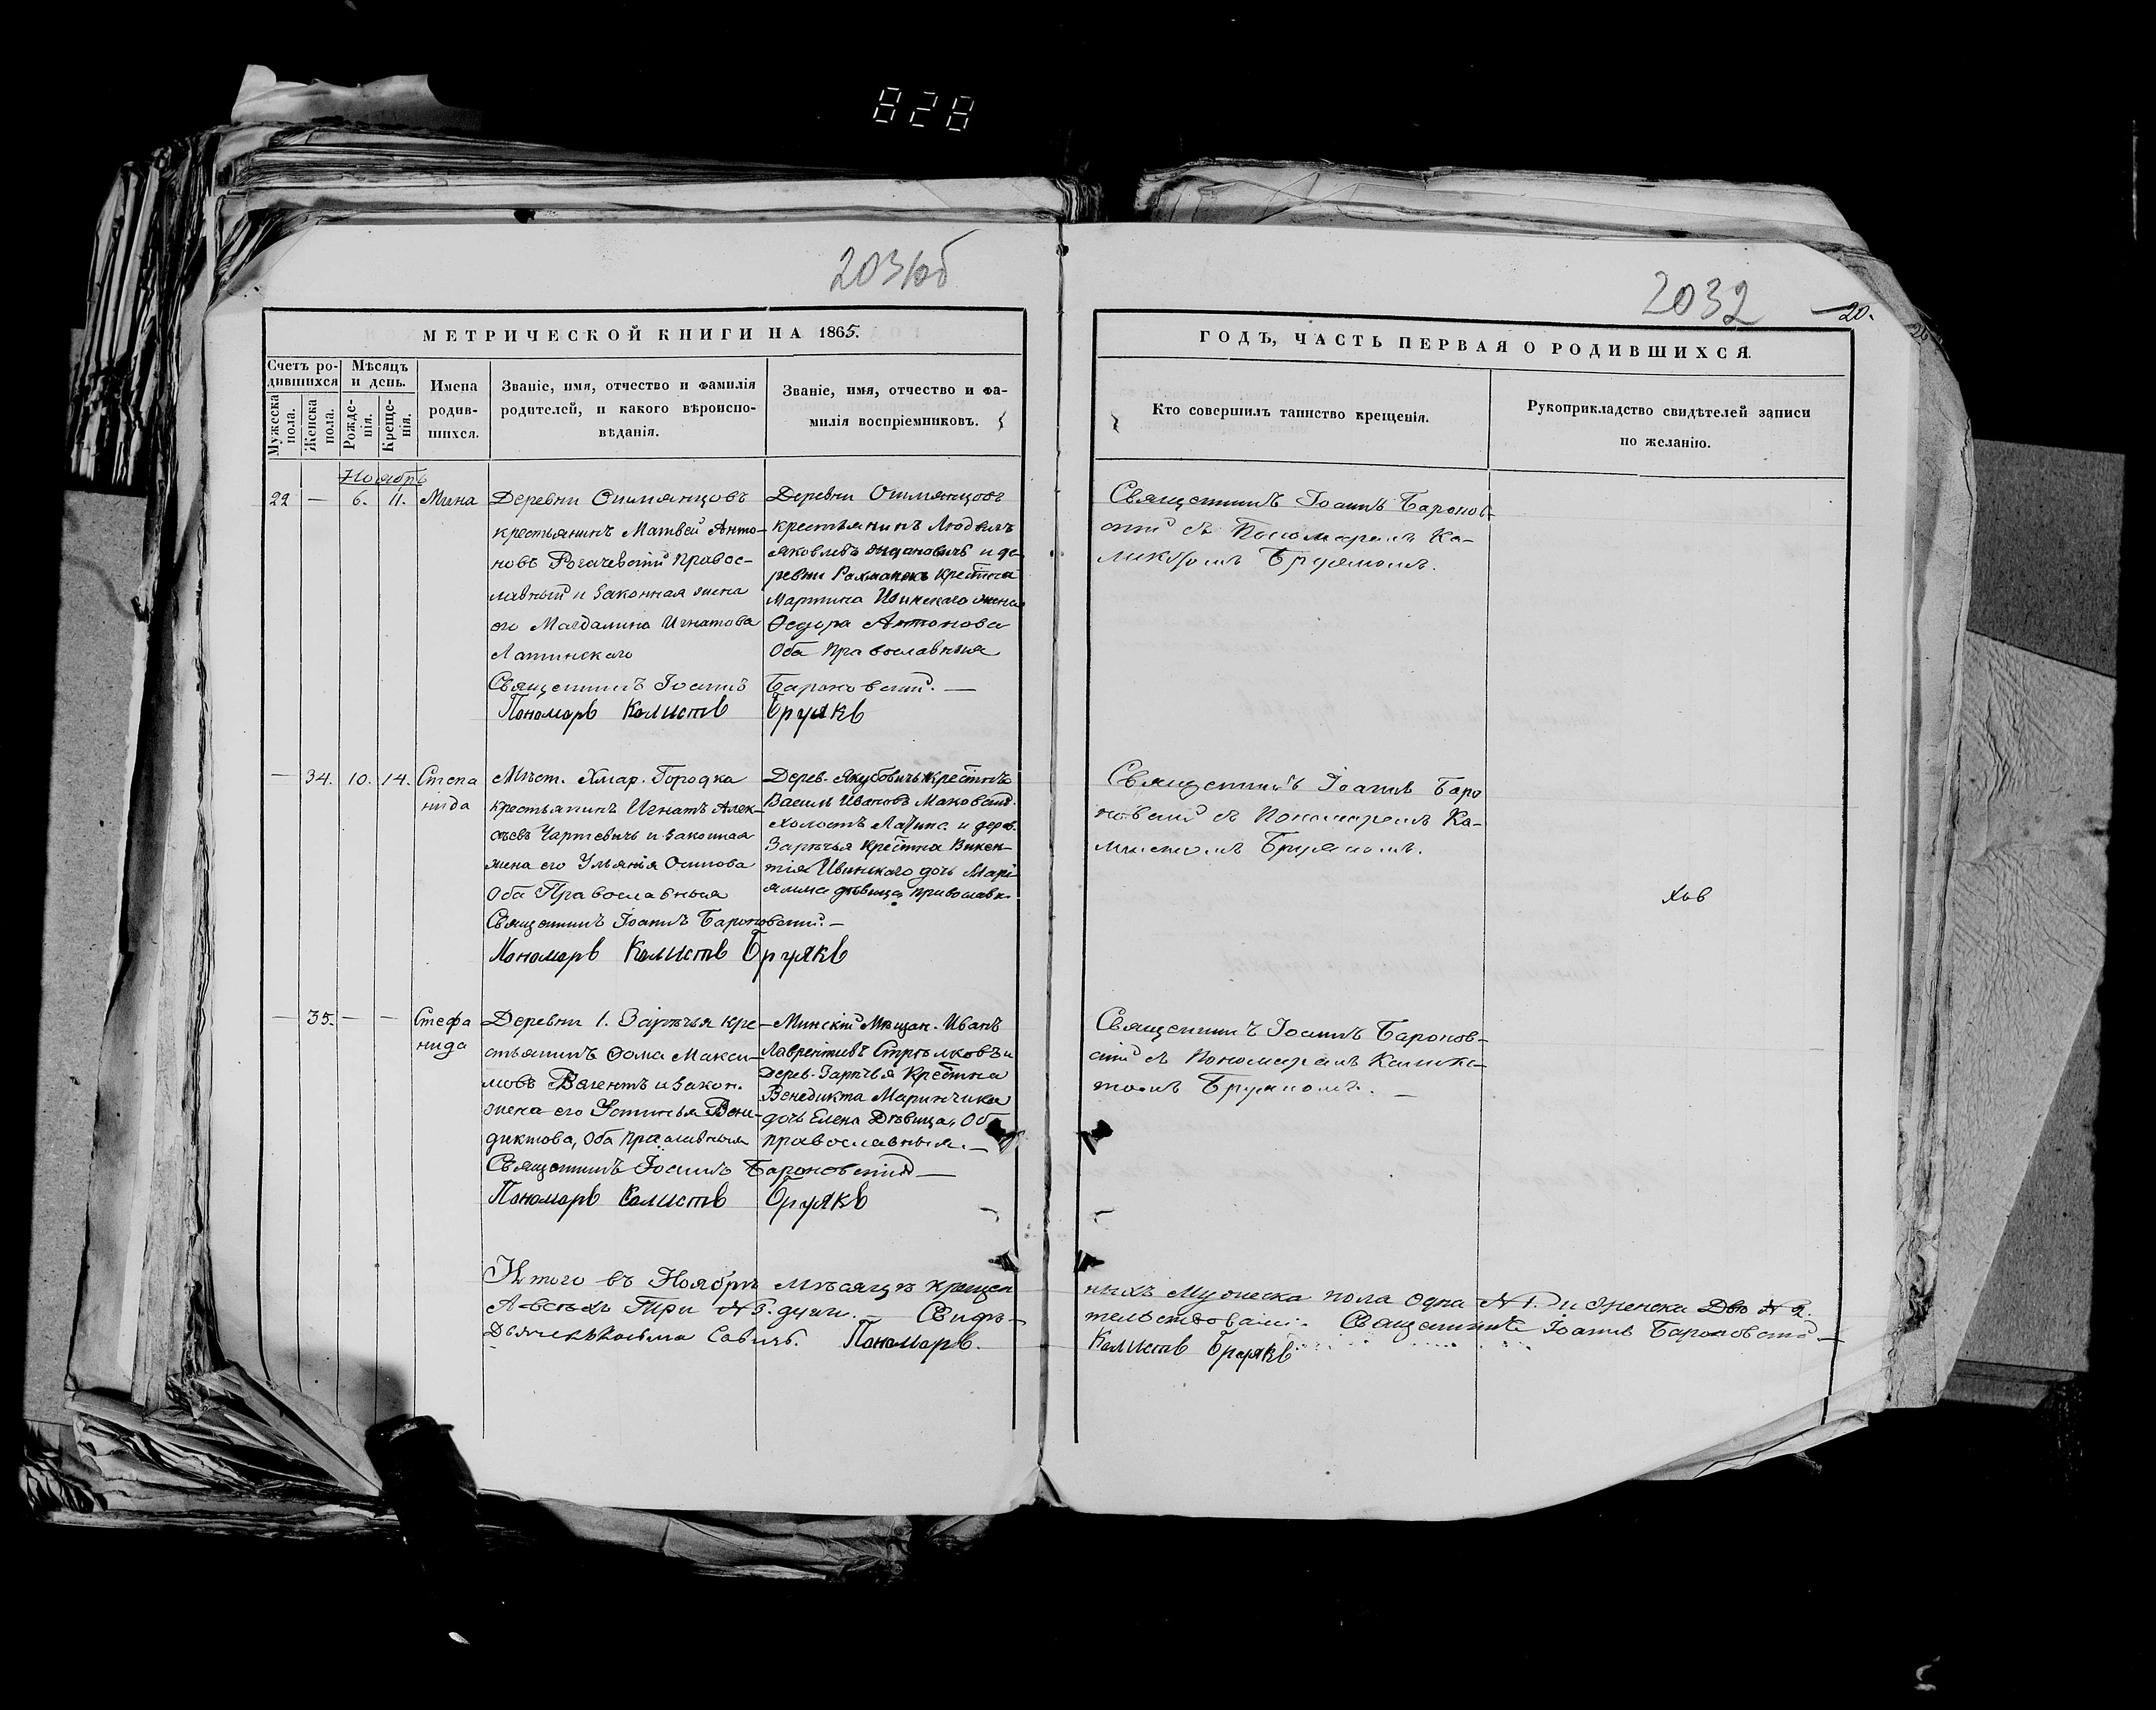 828
2031об
2032
20.
МЕТРИЧЕСКОЙ КНИГИ НА 1865.
ГОДЪ, ЧАСТЬ ПЕРВАЯ О РОДИВШИХСЯ.
Счетъ ро-
дившихся
Мѣсяцъ
и день.
Мужеска
пола.
Женска
пола.
Рожде-
нія.
Креще-
нія.
Имена
родив-
шихся.
Званіе, имя, отчество и фамилія
родителей, и какого вѣроиспо-
вѣданія.
Званіе, имя, отчество и фа-
милія воспріемниковъ.
Кто совершилъ таинство крещенія.
Рукоприкладство свидѣтелей записи
по желанію.
Ноябрь
22 — 6. 11. Мина
Деревни Ошмянцовъ
крестьянинъ Матвей Анто-
новъ Рогачевскій Правос-
лавный и законная жена
его Магдалина Игнатова
Латинскаго
Священникъ Іоаннъ Бароновскій. —
Пономарь Калистъ Брусякъ
Деревни Ошмянцовъ
крестьянинъ Людвигъ
Яковлевъ и де-
ревни крестьян
Мартина Ивинскаго жена
Ѳедора Антонова
Оба православныя
Священникъ Іоаннъ Баронов-
скій съ Пономаремъ Ка-
ликстомъ
— 34. 10. 14. Степа
нида
Мѣст. Хмар. Городка
крестьянинъ Игнатъ Алек-
сѣевъ Чарневичъ и законная
жена его Ульянія Осипова
Оба Православныя
Священникъ Іоаннъ Бароновскій. —
Пономарь Калистъ Брусякъ
Дерев. Якубовичъ крестнъ
Василь Ивановъ Маковскій
холостъ Латинс. и дерев.
Зарѣчья крестна Викен-
тія Ивинскаго дочь Марі
янна дѣвица православн.
Священникъ Іоаннъ Баро
новскій съ Пономаремъ Ка-
ликстомъ
— 35. — — Стефа
нида
Деревни 1. Зарѣчья кре-
стьянинъ Ѳома Макси-
мовъ и закон.
жена его Устинья Вене-
диктова, Оба православныя
Священникъ Іоаннъ Бароновскій —
Пономарь Калистъ Брусякъ
Минскій Мѣщан. Иванъ
Лаврентіевъ Стрѣлковъ и
Дерев. Зарѣчья крестна
Венедикта Маринчика
дочь Елена Дѣвица, Оба
православныя. —
Священникъ Іоаннъ Баронов-
скій съ Пономаремъ Каликс-
томъ
Итого въ Ноябрѣ мѣсяцѣ крещен
ныхъ Мужеска пола Одна № 1. и Женска Двѣ № 2.
А всѣхъ Три № 3. души. — Свидѣ-
тельствовали: Священникъ Іоаннъ Бароновскій —
Савичъ. Пономарь.
Калистъ Брусякъ